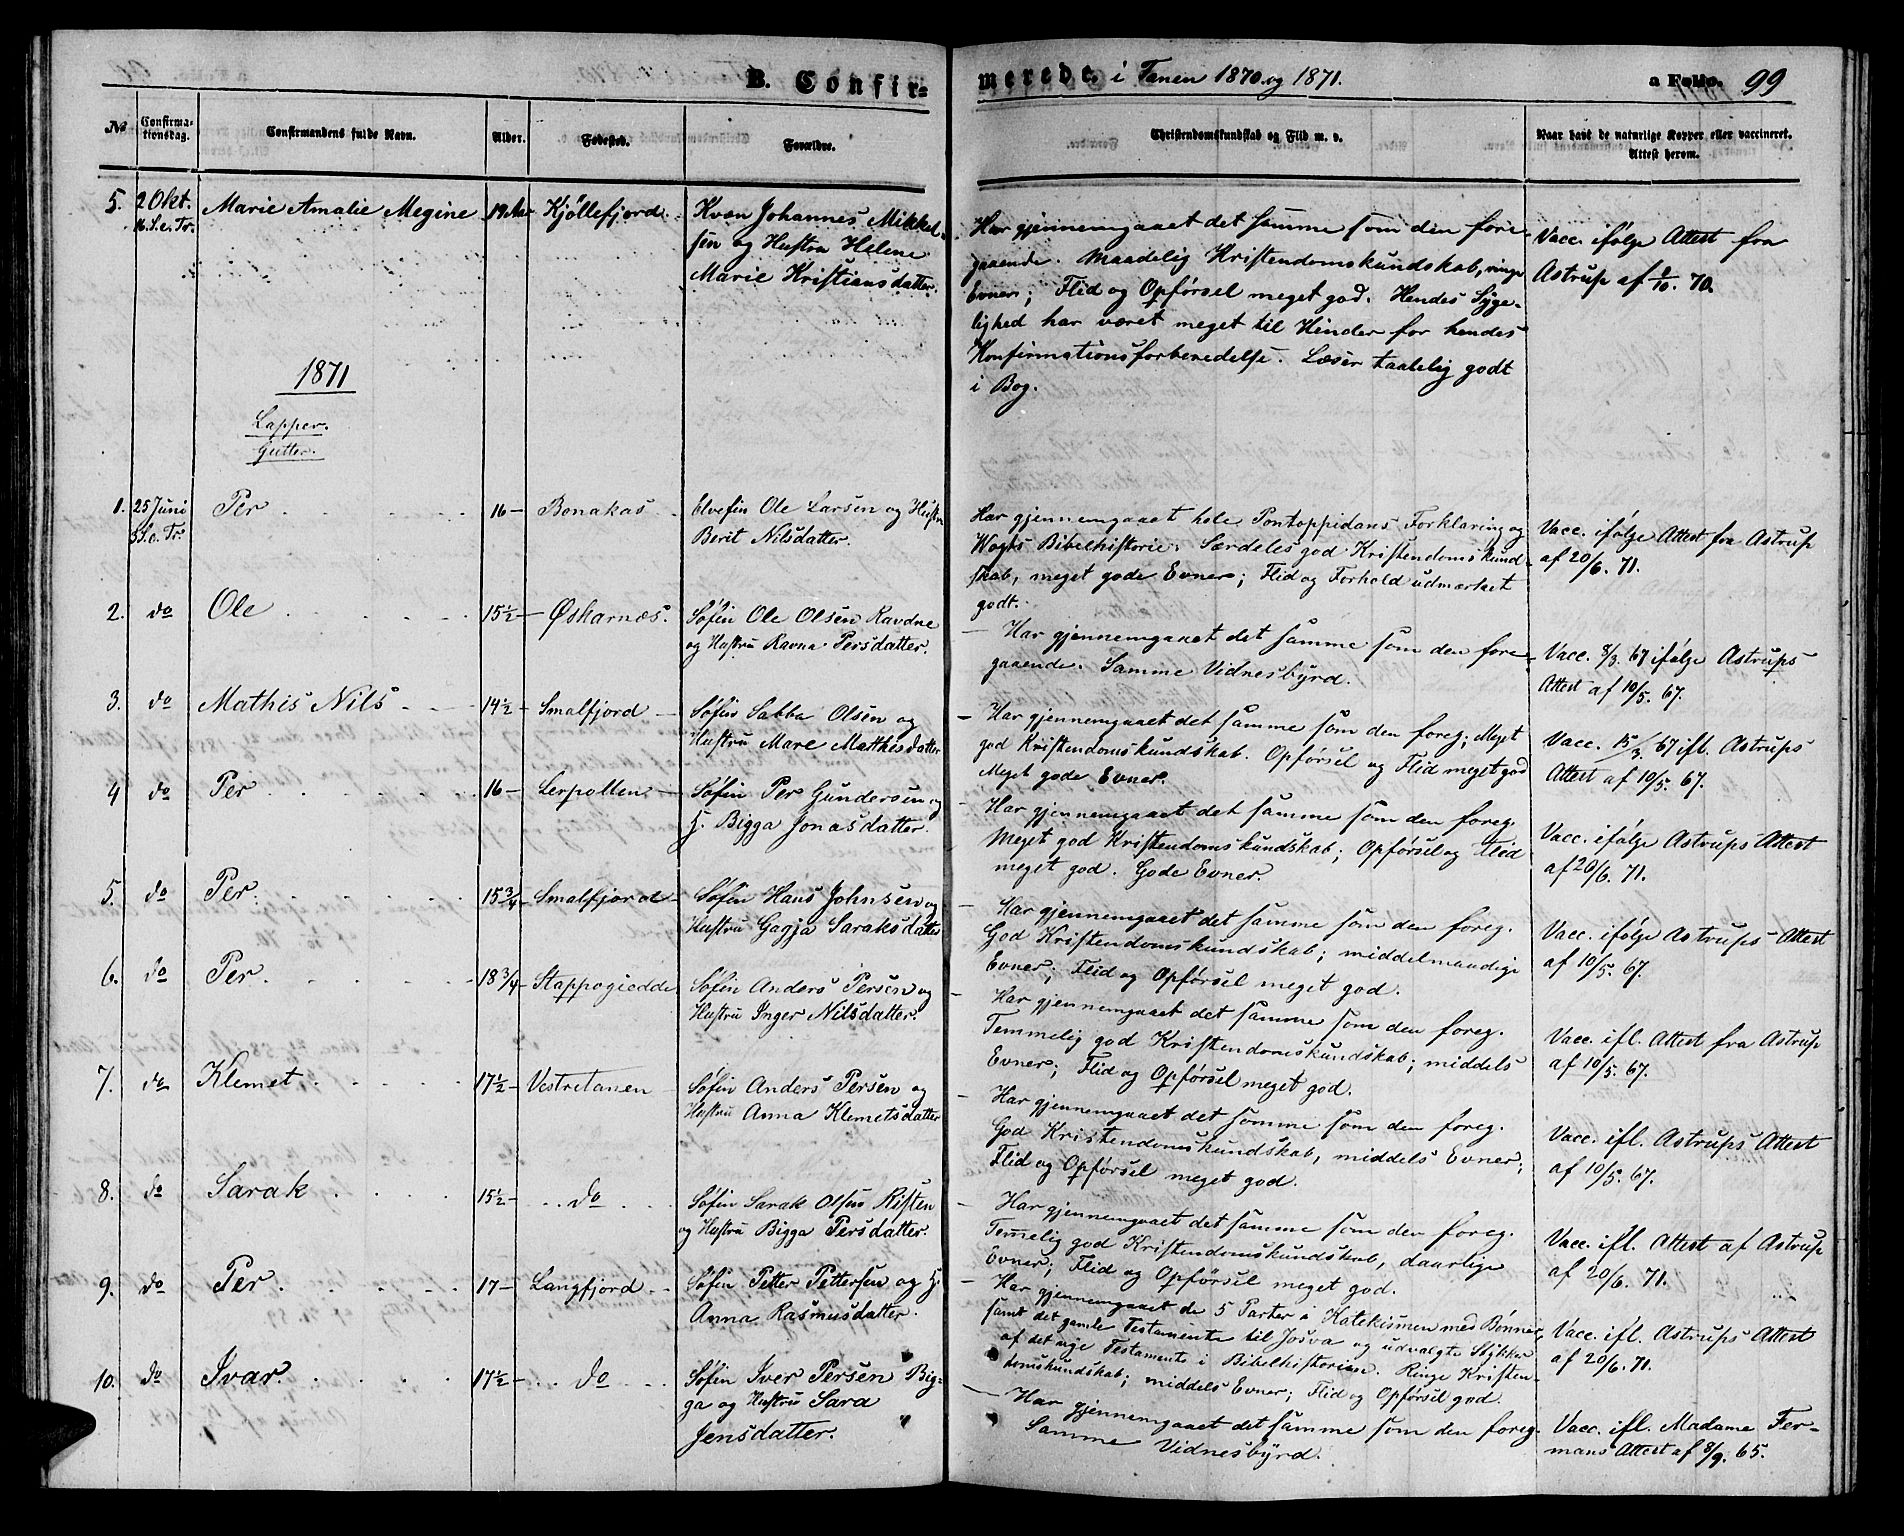 B. Confir-
merede. i Tanen 1870 og 1871.
a Folio. 99
No
Confirma-
tionsdag.
Confirmandens fulde Navn.
Alder.
Fødested.
Forældre.
Christendomskundskab og Flid m. v.
Naar havt de naturlige Kopper eller vaccineret.
Attest herom.
5.
2 Okt.
16. S. e. Tr.
Marie Amalie Megine
19 Aar
Kjøllefjord.
Kvæn Johannes Mikkel-
sen og Hustru Helene
Marie Kristiansdatter.
Har gjennemgaaet det samme som den fore-
gaaende. Maadelig Kristendomskundskab, ringe
Evner; Flid og Opførsel meget god. Hendes Syge-
lighed har været meget til Hinder for hendes
Konfirmationsforberedelse. Læser taalelig godt
i Bog.
Vacc. ifølge Attest fra
Astrup af 70.
1871
Lapper.
Gutter.
1.
25 Juni
3 S. e. Tr.
Per
16
Bonakas
Elvefin Ole Larsen og Hustru
Berit Nilsdatter.
Har gjennemgaaet hele Pontoppidans Forklaring og
Wogts Bibelhistorie. Særdeles god Kristendomskund-
skab, meget gode Evner; Flid og Forhold udmærket
godt.
Vacc. ifølge Attest fra Astrup
af 20/6. 71.
2.
do
Ole
15½
Øskarnæs.
Søfin Ole Olsen Ravdne
og Hustru Ravna Persdatter.
— Har gjennemgaaet det samme som den fore-
gaaende. Samme Vidnesbyrd.
Vacc. 8/3. 67 ifølge Astrups
Attest af 10/5. 67.
3.
do
Mathis Nils
14½
Smalfjord
Søfin Sabba Olsen og
Hustru Mare Mathisdatter
— Har gjennemgaaet det samme som den foreg; Meget
god Kristendomskundskab. Opførsel og Flid meget god
Meget gode Evner.
Vacc. 15/3 67 ifl. Astrups
Attest af 10/5. 67.
4
do
Per
16
Lerpollen
Søfin Per Gundersen og
H. Bigga Jonasdatter.
— Har gjennemgaaet det samme som den foreg.
Meget god Kristendomskundskab; Opførsel og Flid
meget god. Gode Evner.
Vacc. ifølge Astrups Attest
af 20/6. 71.
5.
do
Per
15¾
Smalfjord
Søfin Hans Johnsen og
Hustru Gagja Saraksdatter
— Har gjennemgaaet det samme som den foreg.
God Kristendomskundskab; middelmaadige
Evner; Flid og Opførsel meget god.
Vacc. ifølge Astrups Attest
af 10/5. 67.
6.
do
Per
18¾
Stappogiedde
Søfin Anders Persen og
Hustru Inger Nilsdatter.
— Har gjennemgaaet det samme som den foreg.
Temmelig god Kristendomskundskab; middels
Evner; Flid og Opførsel meget god.
Vacc. ifl. Attest fra Astrup
af 10/5. 67.
7.
do
Klemet
17½
Vestretanen
Søfin Anders Persen og
Hustru Anna Klemetsdatter
— Har gjennemgaaet det samme som den foreg.
God Kristendomskundskab, middels Evner;
Flid og Opførsel meget god.
Vacc. ifl. Astrups Attest
af 10/5. 67.
8.
do
Sarak
15½
do
Søfin Sarak Olsen Risten
og Hustru Bigga Persdatter.
— Har gjennemgaaet det samme som den foreg.
Temelig god Kristendomskundskab, daarlige
Evner; Flid og Opførsel meget god.
Vacc. ifl. Attest af Astrup
af 20/6. 71.
9.
do
Per
17
Langfjord
Søfin Petter Pettersen og H.
Anna Rasmusdatter.
— Har gjennemgaaet de 5 Parter i Katekismen med Bønner,
samt det gamle Testamente til Josva og udvalgte Stykker
af det nye Testamente i Bibelhistorien. Ringe Kristen-
domskundskab; middels Evner; Flid og Opførsel god.
Vacc. ifl. Astrups Attest
af 20/6. 71.
10.
do
Ivar
17½
do
Søfin Iver Persen Big-
ga og Hustru Sara
Jensdatter.
— Har gjennemgaaet det samme som den foreg.
Samme Vidnesbyrd.
Vacc. ifl. Madame Fer-
mans Attest af 8/9. 65.